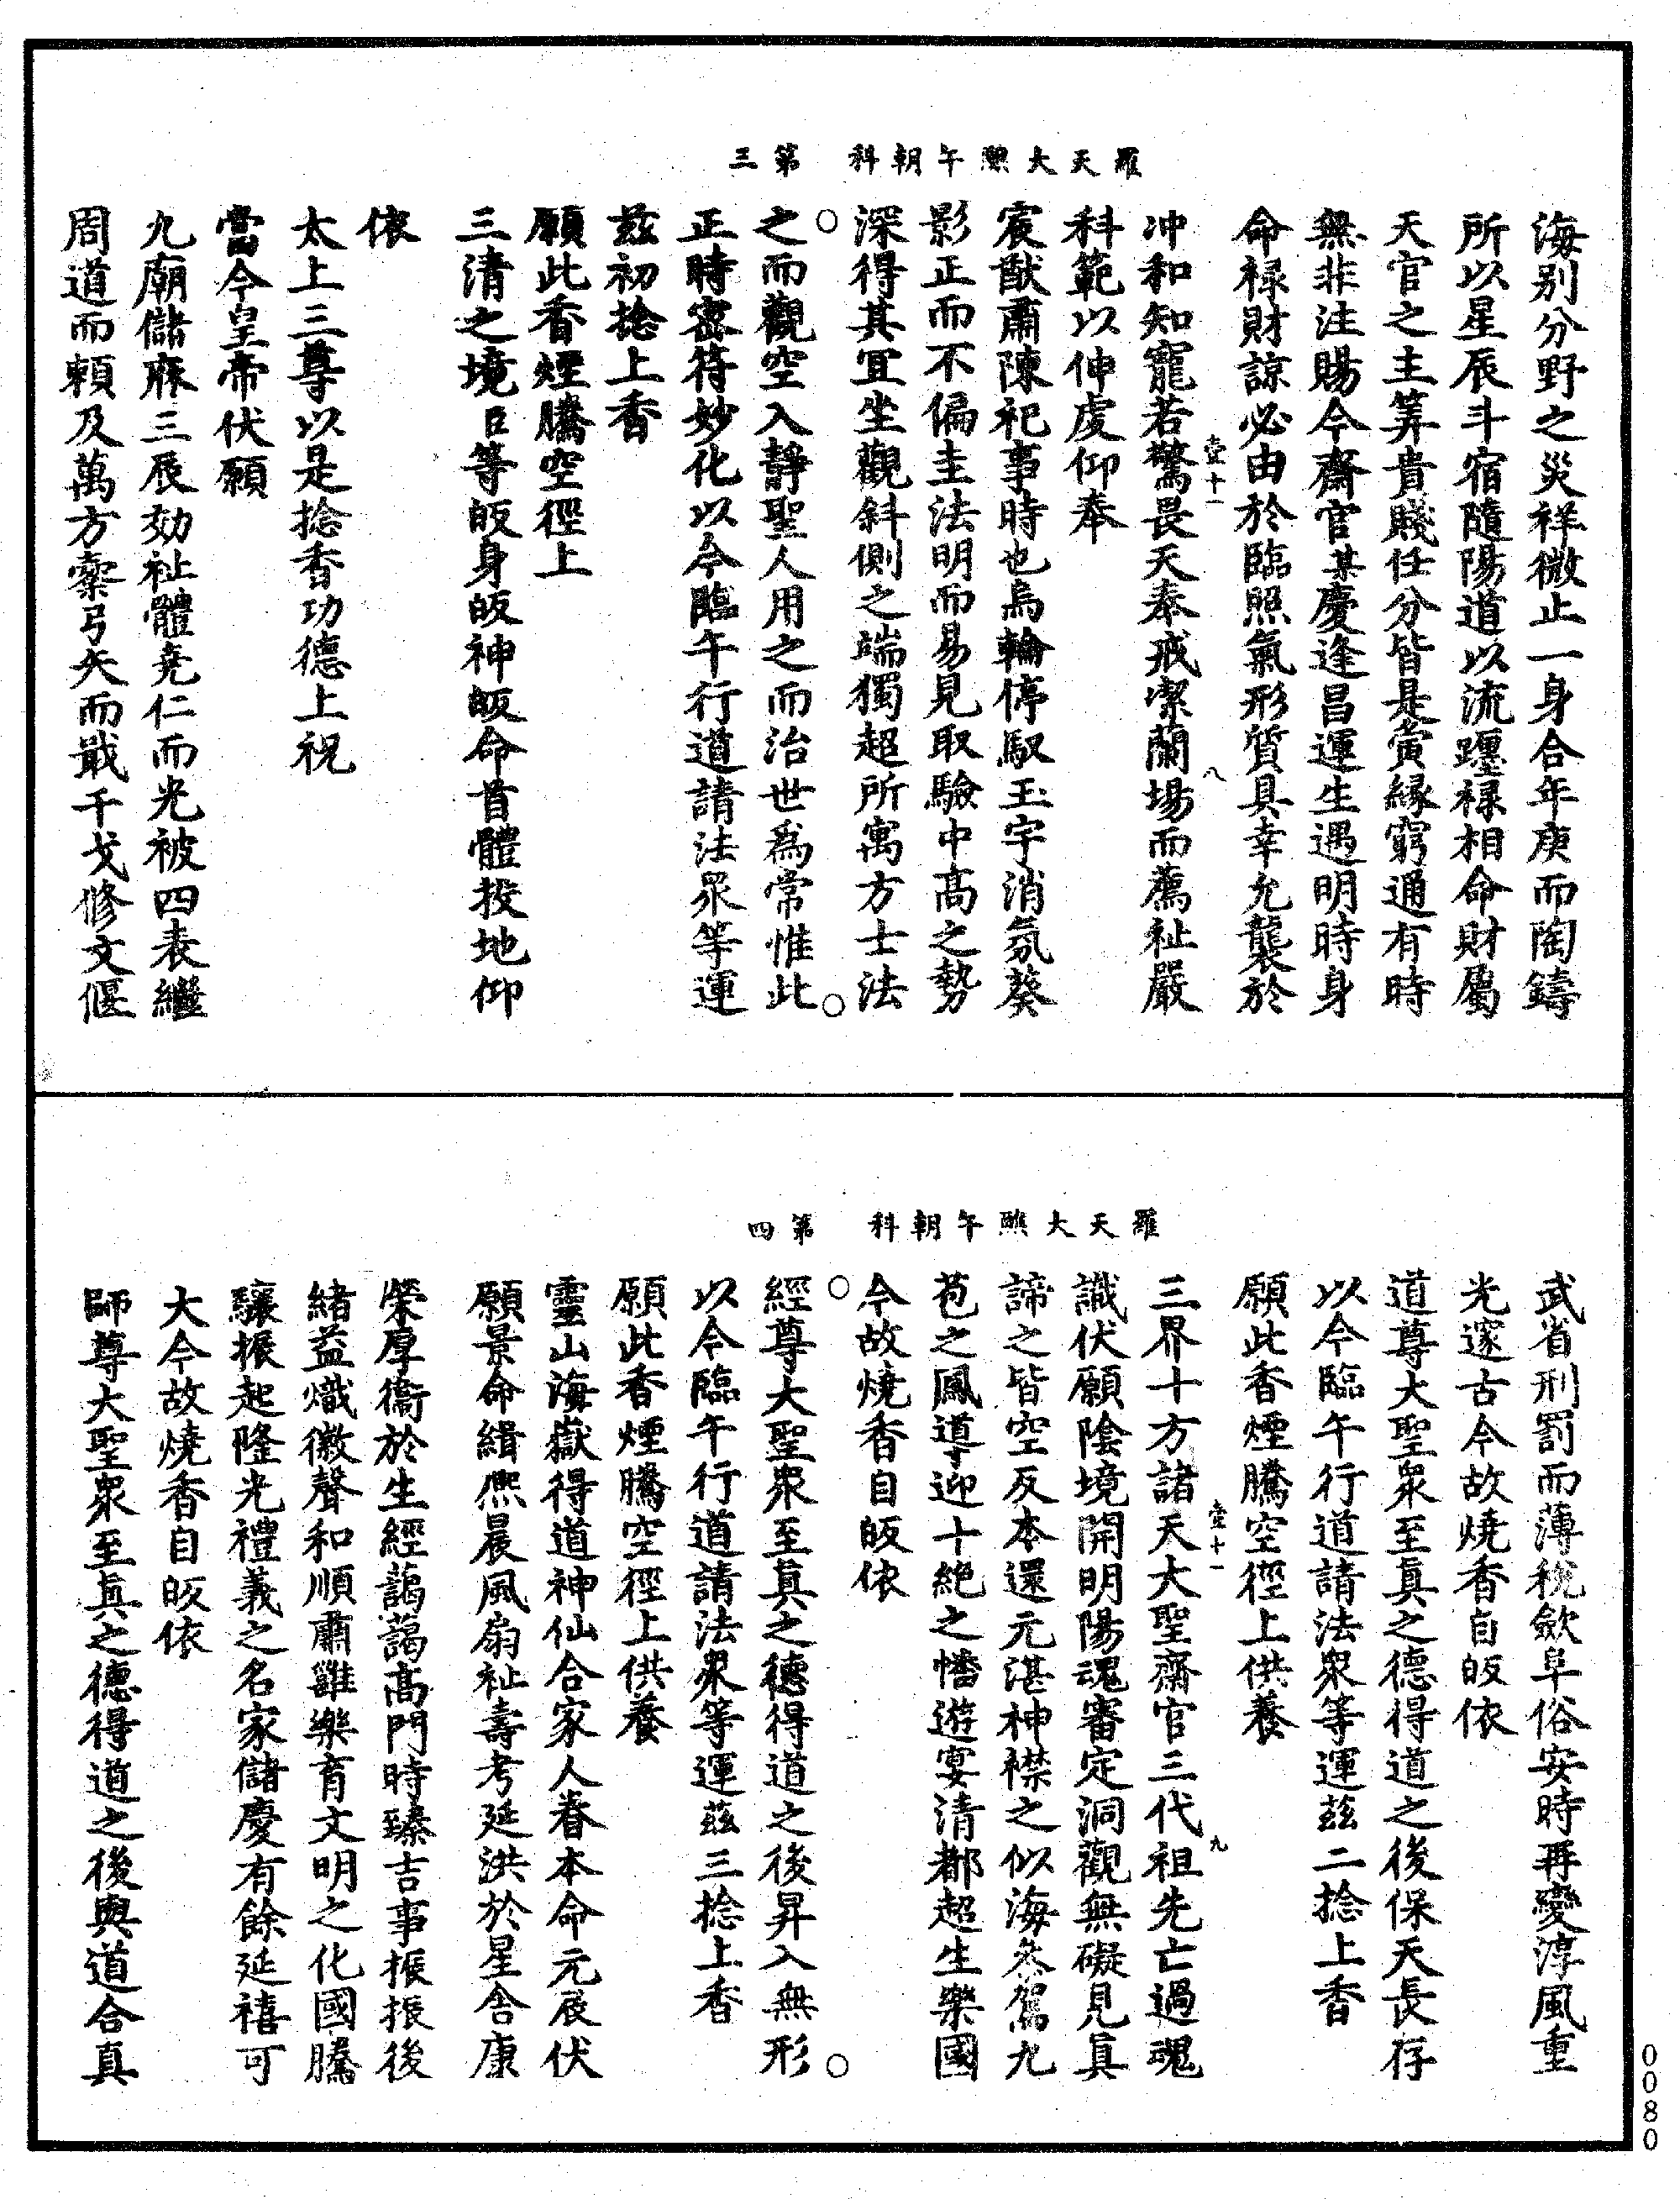 羅天大醮午朝科　第三
海別分野之災祥微止一身合年庚而陶鑄
所以星辰斗宿隨陽道以流躔祿相命財屬
天官之主筭貴賤任分皆是寅緣窮通有時
無非注賜今齋官某慶逢昌運生遇明時身
命祿財諒必由於臨照氣形質具幸允襲於
壹十一　八
冲和知寵若驚畏天奉戒潔蘭場而薦祉嚴
科範以伸虔仰奉
宸猷肅陳祀事時也烏輪停馭玉宇消氛葵
影正而不偏圭法明而易見取驗中高之勢
深得其宜坐觀斜側之端獨超所寓方士法
之而觀空入靜聖人用之而治世為常惟此
正時密符妙化以今臨午行道請法眾等運
茲初捻上香
願此香煙騰空徑上
三清之境臣等皈身皈神皈命首體投地仰
依
太上三尊以是捻香功德上祝
當今皇帝伏願
九廟儲庥三辰効祉體堯仁而光被四表繼
周道而賴及萬方櫜弓矢而戢干戈修文偃
羅天大醮午朝科　第四
武省刑罰而薄稅斂阜俗安時再變淳風重
光邃古今故燒香自皈依
道尊大聖眾至真之德得道之後保天長存
以今臨午行道請法眾等運茲二捻上香
願此香煙騰空徑上供養
壹十一　九
三界十方諸天大聖齋官三代祖先亡過魂
識伏願陰境開明陽魂審定洞觀無礙見真
諦之皆空反本還元湛神襟之似海叅駕九
苞之鳳導迎十絕之幡遊宴清都超生樂國
今故燒香自皈依
經尊大聖眾至真之德得道之後昇入無形
以今臨午行道請法眾等運茲三捻上香
願此香煙騰空徑上供養
靈山海嶽得道神仙合家人眷本命元辰伏
願景命緝熈晨風扇祉壽考延洪於星舍康
榮厚衞於生經藹藹高門時臻吉事振振後
緒益熾徽聲和順肅雝樂育文明之化國騰
驤振起隆光禮義之名家儲慶有餘延禧可
大今故燒香自皈依
師尊大聖眾至真之德得道之後與道合真
0080